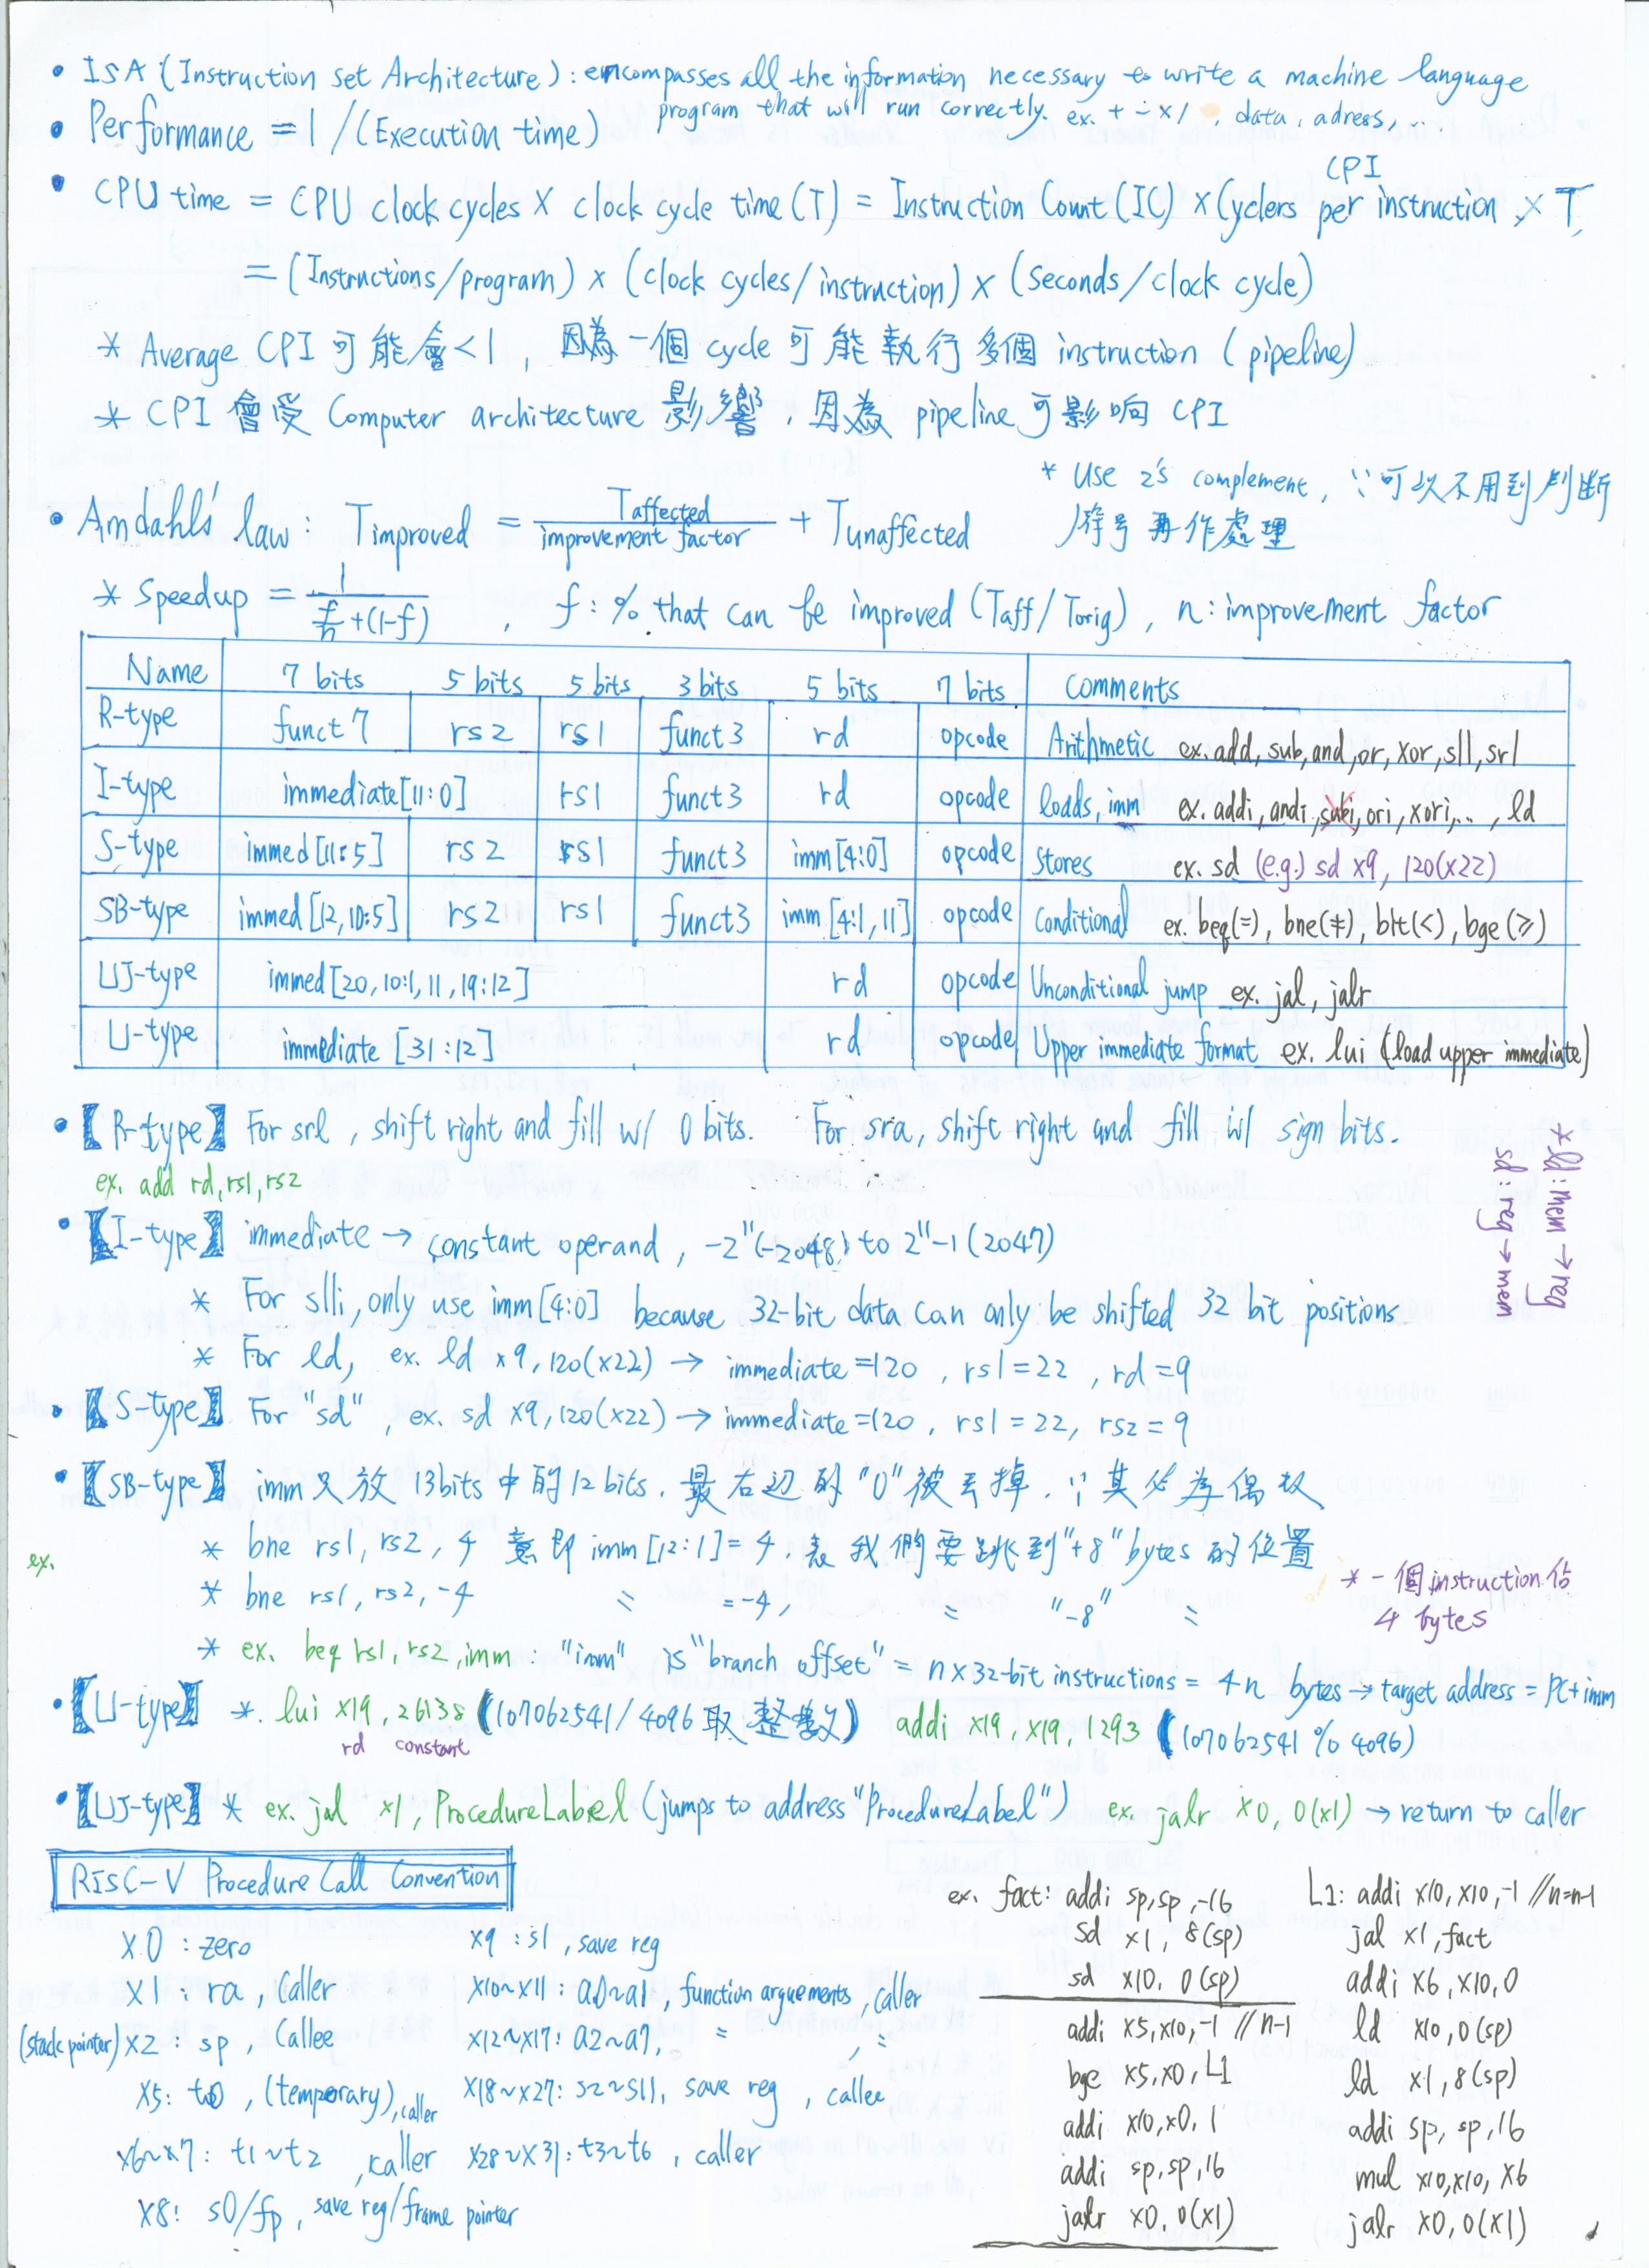 • ISA (Instruction set Architecture) : emcompasses all the information necessary to write a machine language
program that will run correctly. ex. + - × / , data, adress, ...
• Performance = 1 / (Execution time)
CPI
• CPU time = CPU clock cycles × clock cycle time (T) = Instruction Count (IC) × Cyclers per instruction × T
= (Instructions/program) × (clock cycles/instruction) × (Seconds/clock cycle)
* Average CPI 可能會<1 , 因為一個 cycle 可能執行多個 instruction (pipeline)
* CPI 會受 Computer architecture 影響, 因為 pipeline 可影响 CPI
* Use 2's complement, ∵可以不用到判斷
符号再作處理
• Amdahl's law : Timproved = Taffected / improvement factor + Tunaffected
* Speedup = 1 / (f/n + (1-f)) , f : % that can be improved (Taff/Torig) , n : improvement factor
Name 7 bits 5 bits 5 bits 3 bits 5 bits 7 bits Comments
R-type funct 7 rs2 rs1 funct3 rd opcode Arithmetic ex. add, sub, and, or, xor, sll, srl
I-type immediate[11:0] rs1 funct3 rd opcode loads, imm ex. addi, andi, subi, ori, xori, ... , ld
S-type immed[11:5] rs2 rs1 funct3 imm[4:0] opcode stores ex. sd (e.g.) sd x9, 120(x22)
SB-type immed[12,10:5] rs2 rs1 funct3 imm[4:1,11] opcode Conditional ex. beq(=), bne(≠), blt(<), bge(≥)
UJ-type immed[20,10:1,11,19:12] rd opcode Unconditional jump ex. jal, jalr
U-type immediate [31:12] rd opcode Upper immediate format ex. lui (load upper immediate)
• 【R-type】 For srl , shift right and fill w/ 0 bits. For sra, shift right and fill w/ sign bits.
ex. add rd,rs1,rs2
* ld : mem → reg
sd : reg → mem
• 【I-type】 immediate → constant operand, -2^11(-2048) to 2^11-1 (2047)
* For slli, only use imm[4:0] because 32-bit data can only be shifted 32 bit positions
* For ld, ex. ld x9, 120(x22) → immediate=120 , rs1=22 , rd=9
• 【S-type】 For "sd", ex. sd x9,120(x22) → immediate=120 , rs1=22, rs2=9
• 【SB-type】 imm 只放 13bits 中的 12 bits. 最右边的 "0" 被丟掉. ∵其必為偶数
ex. * bne rs1, rs2, 4 意即 imm[12:1]=4. 表我們要跳到 "+8" bytes 的位置
* bne rs1, rs2, -4 〃 =-4, 〃 "-8" 〃
* 一個 instruction 佔
4 bytes
* ex. beq rs1, rs2, imm : "imm" is "branch offset" = n×32-bit instructions = 4n bytes → target address = PC+imm
• 【U-type】 *. lui x19, 26138 (107062541/4096 取整數) addi x19, x19, 1293 (107062541 % 4096)
rd constant
• 【UJ-type】 * ex. jal x1, ProcedureLabel (jumps to address "ProcedureLabel") ex. jalr x0, 0(x1) → return to caller
RISC-V Procedure Call Convention
x0 : zero
x1 : ra , Caller
(stack pointer) x2 : sp , Callee
x5: t0 , (temporary), caller
x6~x7: t1~t2 , caller
x8: s0/fp , save reg/frame pointer
x9 : s1 , save reg
x10~x11: a0~a1, function arguements, caller
x12~x17: a2~a7, 〃 , 〃
x18~x27: s2~s11, save reg , callee
x28~x31: t3~t6 , caller
ex. fact: addi sp,sp,-16
sd x1, 8(sp)
sd x10, 0(sp)
addi x5,x10,-1 // n-1
bge x5,x0,L1
addi x10,x0,1
addi sp,sp,16
jalr x0, 0(x1)
L1: addi x10,x10,-1 //n=n-1
jal x1,fact
addi x6,x10,0
ld x10,0(sp)
ld x1,8(sp)
addi sp, sp,16
mul x10,x10, x6
jalr x0,0(x1)